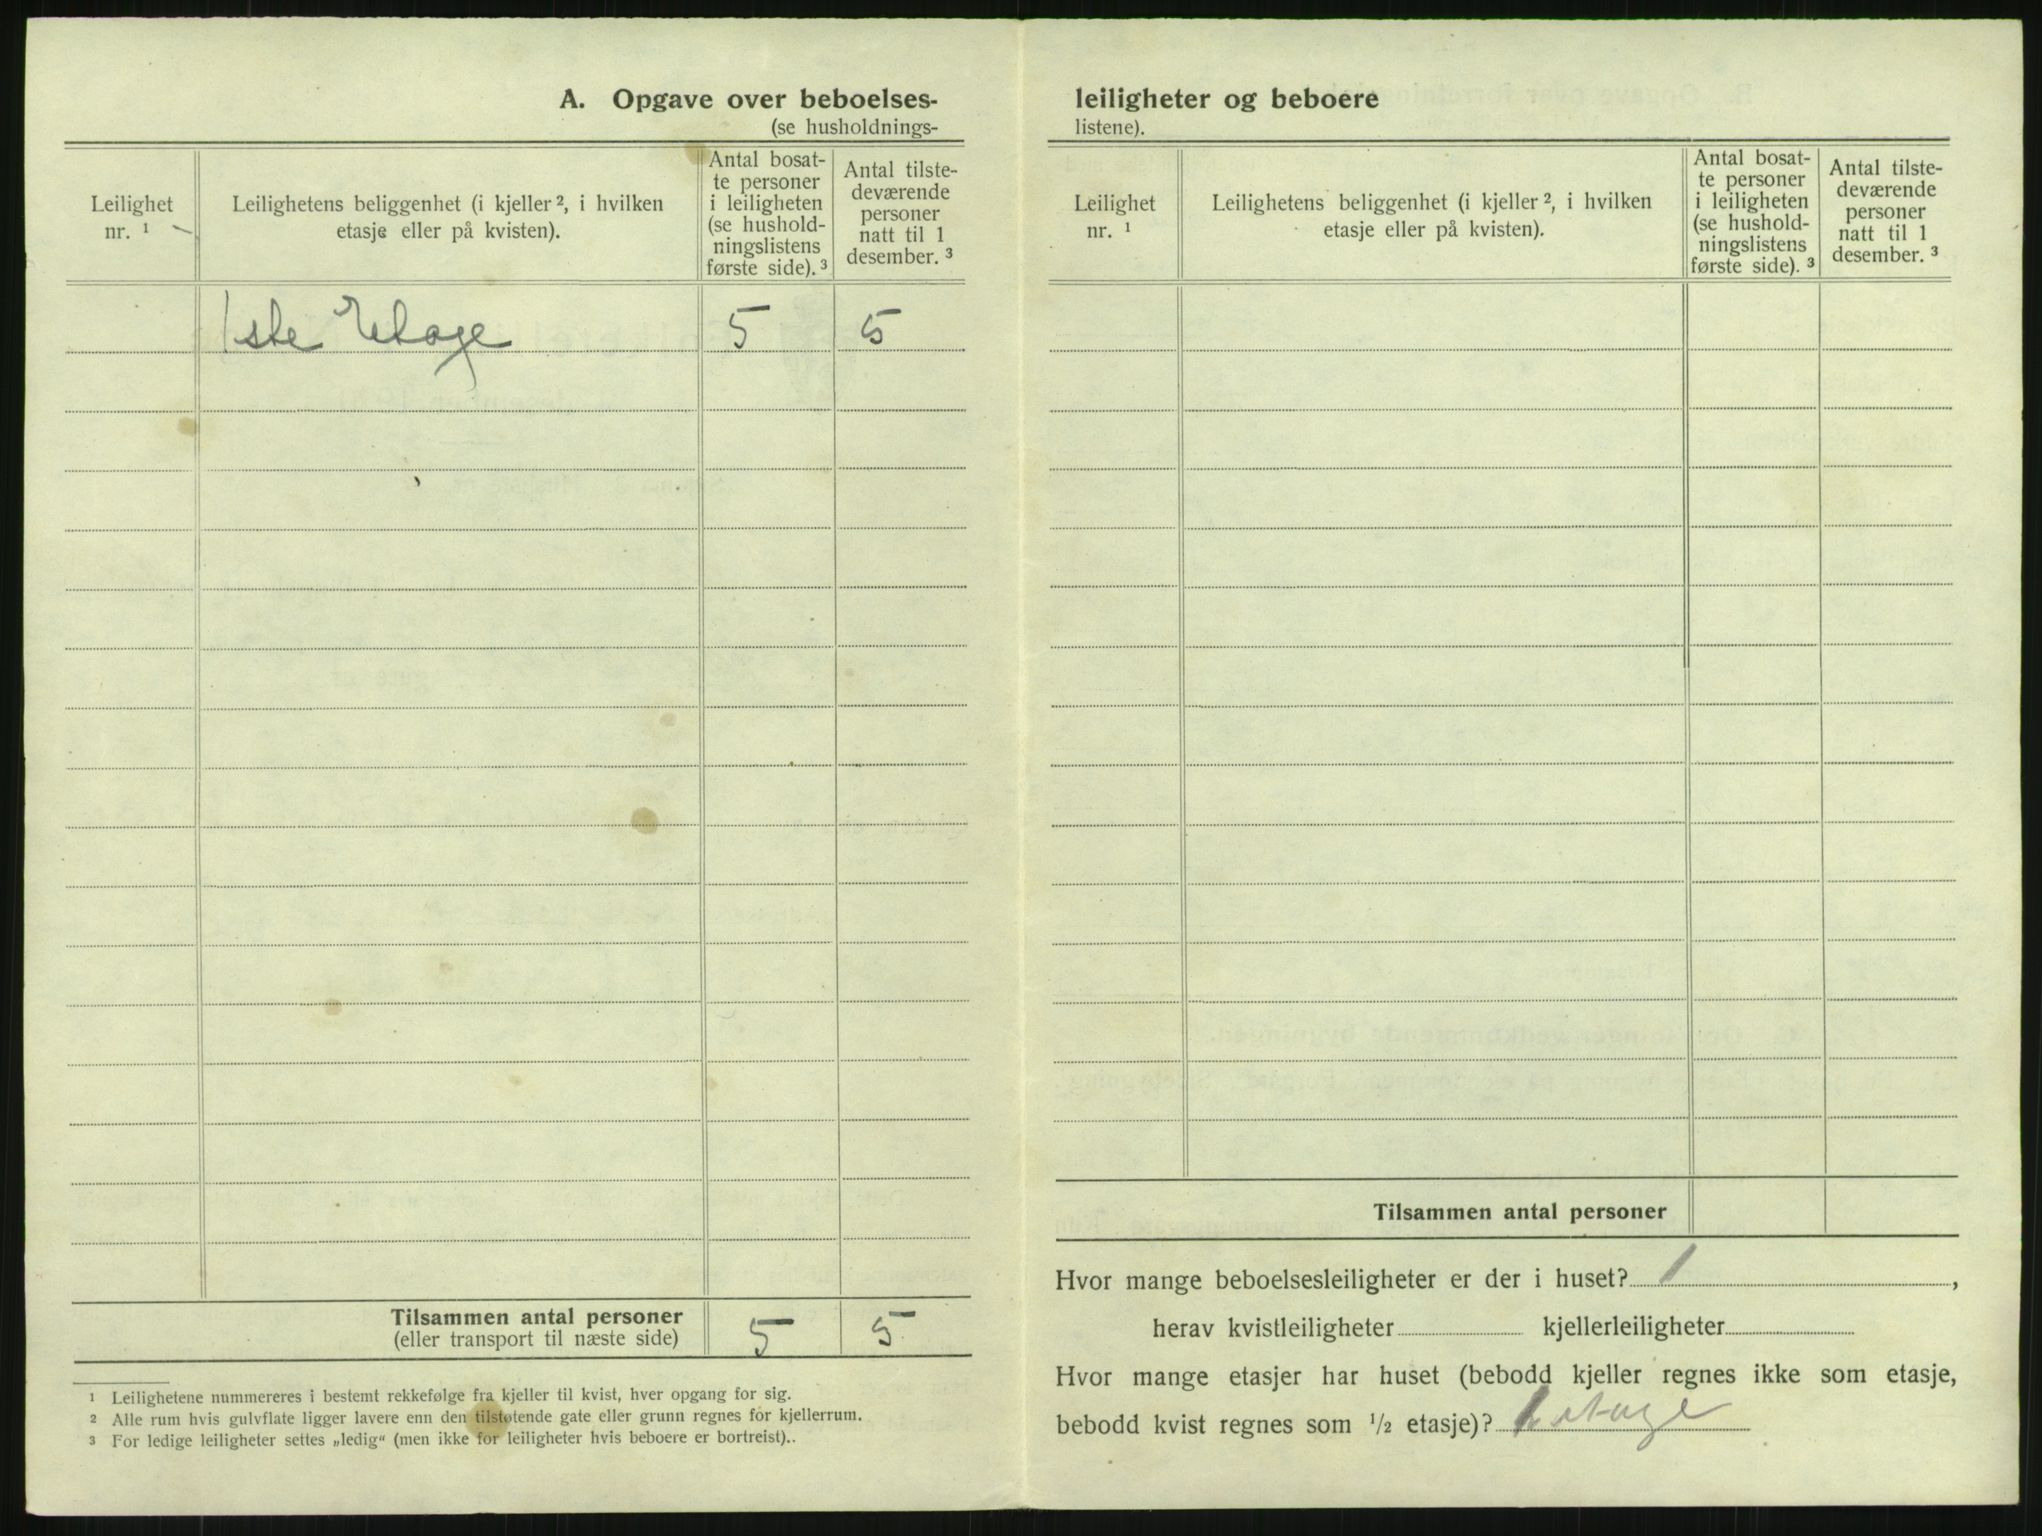 A. Opgave over beboelses-
(se husholdnings-
Leilighet
nr. ¹
Leilighetens beliggenhet (i kjeller ², i hvilken
etasje eller på kvisten).
Antal bosat-
te personer
i leiligheten
(se hushold-
ningslistens
første side). ³
Antal tilste-
deværende
personer
natt til 1
desember. ³
1ste Etage 5 5
Tilsammen antal personer
(eller transport til næste side)
5 5
¹ Leilighetene nummereres i bestemt rekkefølge fra kjeller til kvist, hver opgang for sig.
² Alle rum hvis gulvflate ligger lavere enn den tilstøtende gate eller grunn regnes for kjellerrum.
³ For ledige leiligheter settes „ledig“ (men ikke for leiligheter hvis beboere er bortreist)..
leiligheter og beboere
listene).
Leilighet
nr. ¹
Leilighetens beliggenhet (i kjeller ², i hvilken
etasje eller på kvisten).
Antal bosat-
te personer
i leiligheten
(se hushold-
ningslistens
første side). ³
Antal tilste-
deværende
personer
natt til 1
desember. ³
Tilsammen antal personer
Hvor mange beboelsesleiligheter er der i huset? 1,
herav kvistleiligheter kjellerleiligheter
Hvor mange etasjer har huset (bebodd kjeller regnes ikke som etasje,
bebodd kvist regnes som ½ etasje)? 1 etage